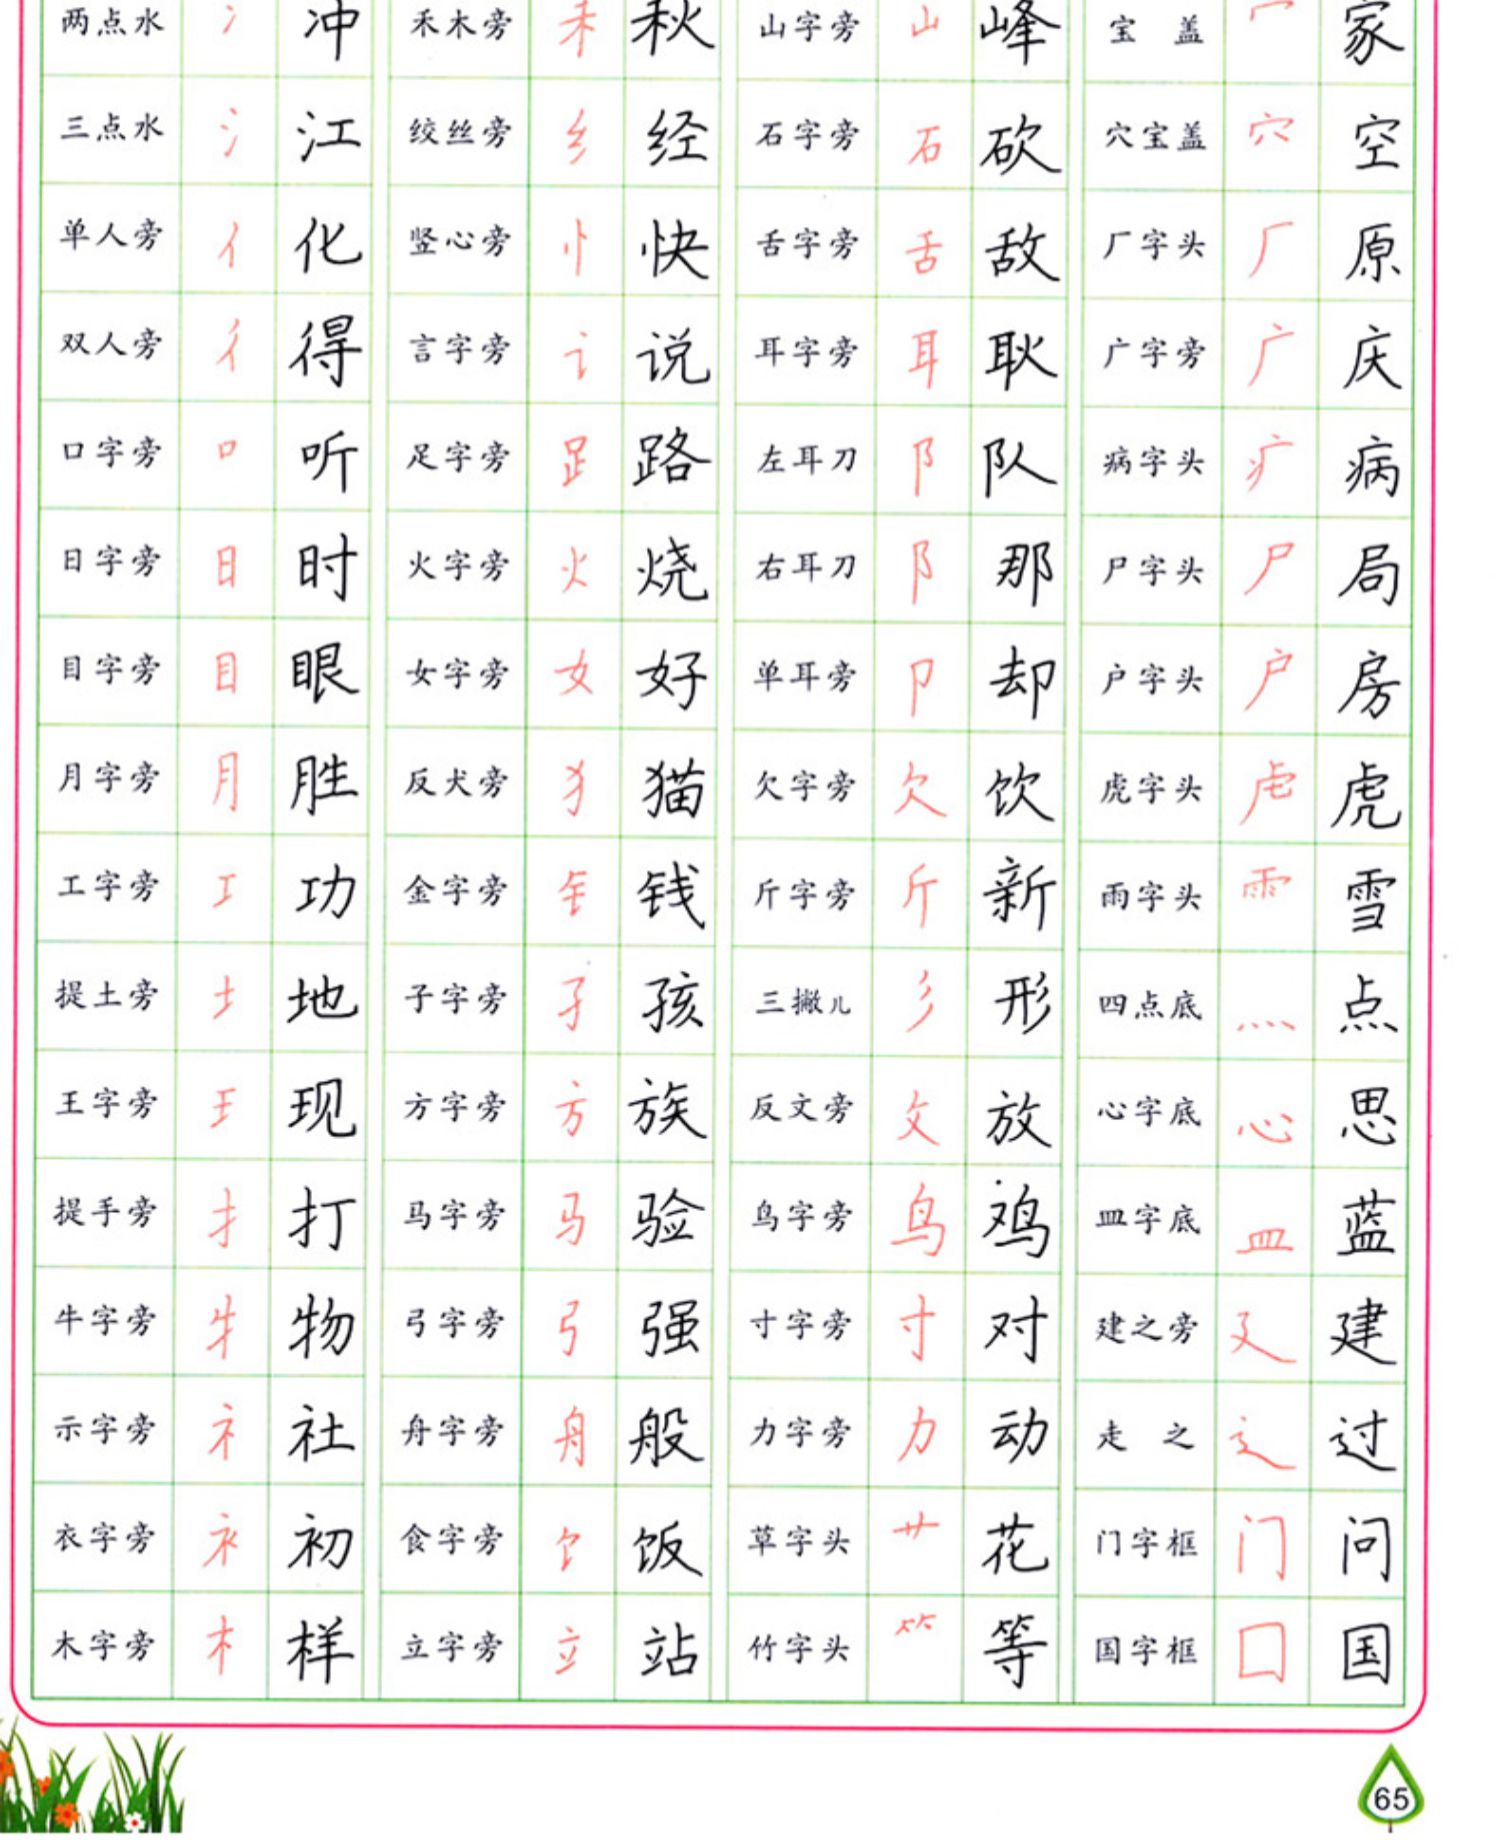 两点水 冫 冲 禾木旁 禾 秋 山字旁 山 峰 宝盖 宀 家
三点水 氵 江 绞丝旁 纟 经 石字旁 石 砍 穴宝盖 穴 空
单人旁 亻 化 竖心旁 忄 快 舌字旁 舌 敌 厂字头 厂 原
双人旁 彳 得 言字旁 讠 说 耳字旁 耳 耿 广字旁 广 庆
口字旁 口 听 足字旁 𧾷 路 左耳刀 阝 队 病字头 疒 病
日字旁 日 时 火字旁 火 烧 右耳刀 阝 那 尸字头 尸 局
目字旁 目 眼 女字旁 女 好 单耳旁 卩 却 户字头 户 房
月字旁 月 胜 反犬旁 犭 猫 欠字旁 欠 饮 虎字头 虍 虎
工字旁 工 功 金字旁 钅 钱 斤字旁 斤 新 雨字头 雨 雪
提土旁 土 地 子字旁 子 孩 三撇儿 彡 形 四点底 灬 点
王字旁 王 现 方字旁 方 族 反文旁 攵 放 心字底 心 思
提手旁 扌 打 马字旁 马 验 鸟字旁 鸟 鸡 皿字底 皿 蓝
牛字旁 牜 物 弓字旁 弓 强 寸字旁 寸 对 建之旁 廴 建
示字旁 礻 社 舟字旁 舟 般 力字旁 力 动 走之 辶 过
衣字旁 衤 初 食字旁 饣 饭 草字头 艹 花 门字框 门 问
木字旁 木 样 立字旁 立 站 竹字头 ⺮ 等 国字框 囗 国
65